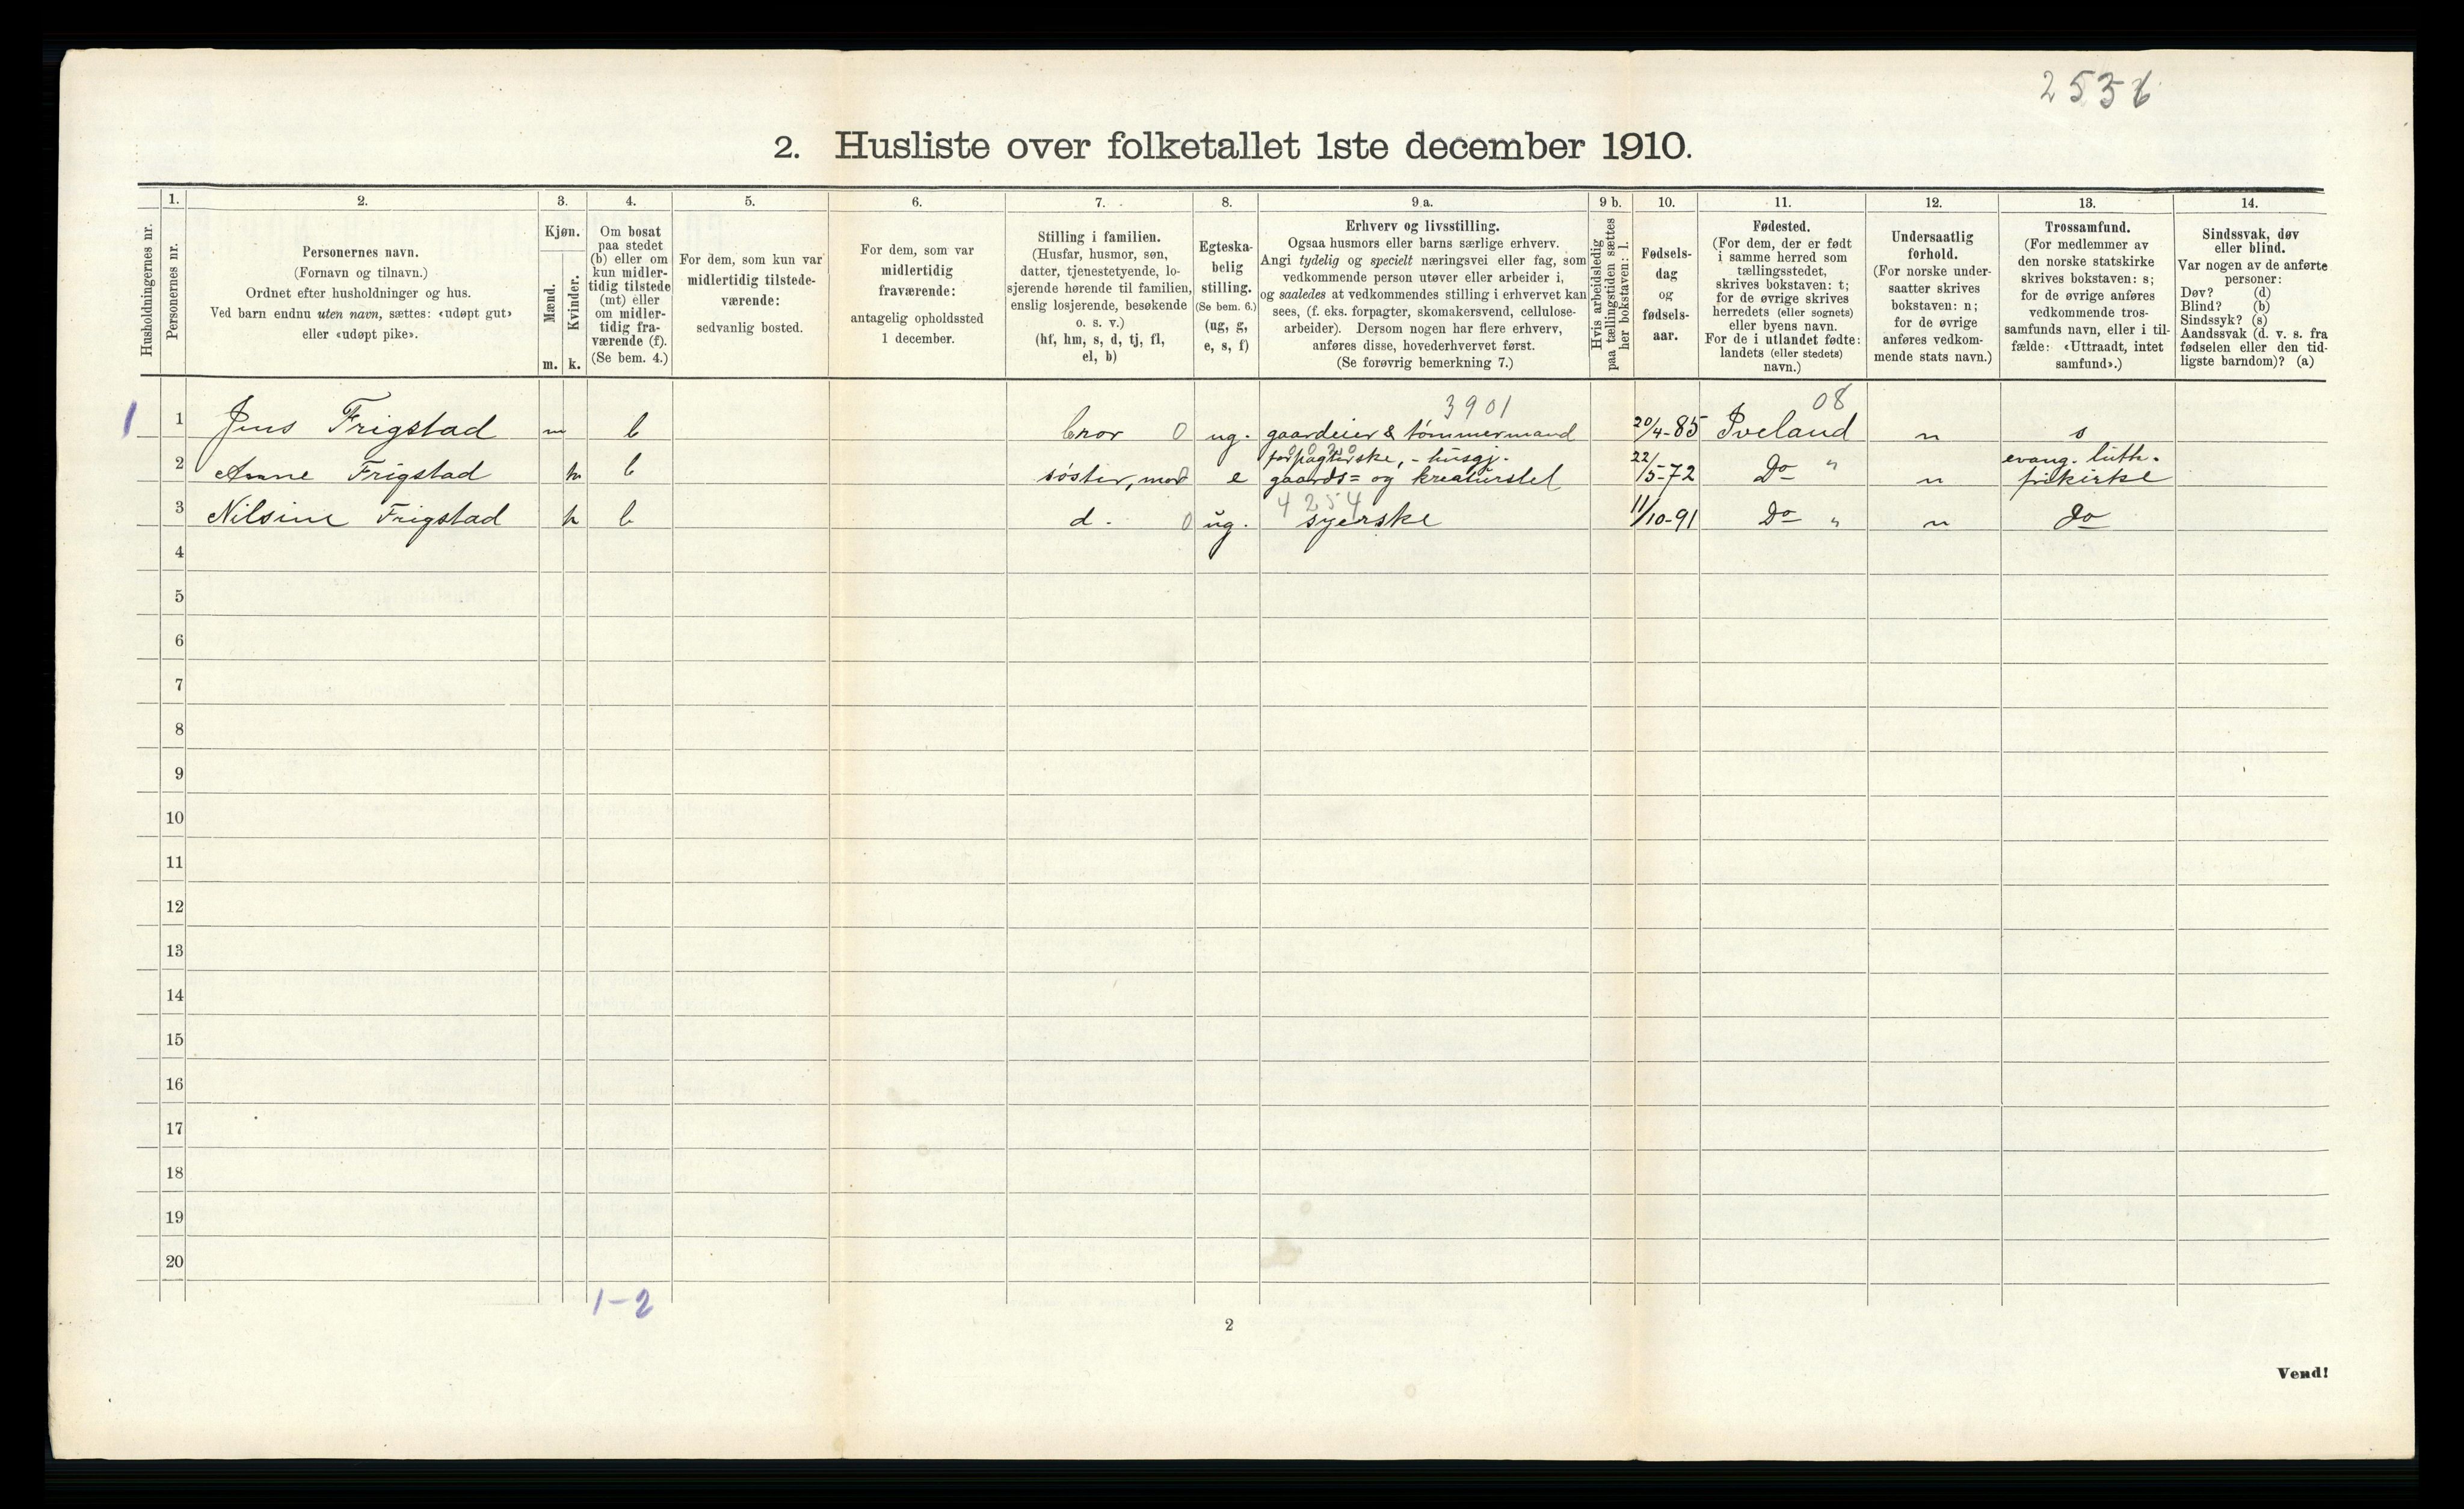 2536
2. Husliste over folketallet 1ste december 1910.
Husholdningernes nr.
1.
Personernes nr.
2.
Personernes navn.
(Fornavn og tilnavn.)
Ordnet efter husholdninger og hus.
Ved barn endnu uten navn, sættes: «udøpt gut»
eller «udøpt pike».
3.
Kjøn.
Mænd.
m.
Kvinder.
k.
4.
Om bosat
paa stedet
(b) eller om
kun midler-
tidig tilstede
(mt) eller
om midler-
tidig fra-
værende (f).
(Se bem. 4.)
5.
For dem, som kun var
midlertidig tilstede-
værende:
sedvanlig bosted.
6.
For dem, som var
midlertidig
fraværende:
antagelig opholdssted
1 december.
7.
Stilling i familien.
(Husfar, husmor, søn,
datter, tjenestetyende, lo-
sjerende hørende til familien,
enslig losjerende, besøkende
o. s. v.)
(hf, hm, s, d, tj, fl,
el, b)
8.
Egteska-
belig
stilling.
(Se bem. 6.)
(ug, g,
e, s, f)
9 a.
Erhverv og livsstilling.
Ogsaa husmors eller barns særlige erhverv.
Angi tydelig og specielt næringsvei eller fag, som
vedkommende person utøver eller arbeider i,
og saaledes at vedkommendes stilling i erhvervet kan
sees, (f. eks. forpagter, skomakersvend, cellulose-
arbeider). Dersom nogen har flere erhverv,
anføres disse, hovederhvervet først.
(Se forøvrig bemerkning 7.)
9 b.
Hvis arbeidsledig
paa tællingstiden sættes
her bokstaven: l.
10.
Fødsels-
dag
og
fødsels-
aar.
11.
Fødested.
(For dem, der er født
i samme herred som
tællingsstedet,
skrives bokstaven: t;
for de øvrige skrives
herredets (eller sognets)
eller byens navn.
For de i utlandet fødte:
landets (eller stedets)
navn.)
12.
Undersaatlig
forhold.
(For norske under-
saatter skrives
bokstaven: n;
for de øvrige
anføres vedkom-
mende stats navn.)
13.
Trossamfund.
(For medlemmer av
den norske statskirke
skrives bokstaven: s;
for de øvrige anføres
vedkommende tros-
samfunds navn, eller i til-
fælde: «Uttraadt, intet
samfund».)
14.
Sindssvak, døv
eller blind.
Var nogen av de anførte
personer:
Døv? (d)
Blind? (b)
Sindssyk? (s)
Aandssvak (d. v. s. fra
fødselen eller den tid-
ligste barndom)? (a)
3901 08
1 1 Jens Frigstad m b bror 0 ug. gaardeier & tømmermand 20/4-85 Iveland n s
forpagterske, - husgj. evang. luth.
2 Anne Frigstad k b søster, mor 0 e gaards= og kreaturstel 22/5-72 Do " n frikirke
4254
3 Nilsine Frigstad k b d. 0 ug. syerske 11/10-91 Do " n do
4
5
6
7
8
9
10
11
12
13
14
15
16
17
18
19
20
1-2
2
Vend!